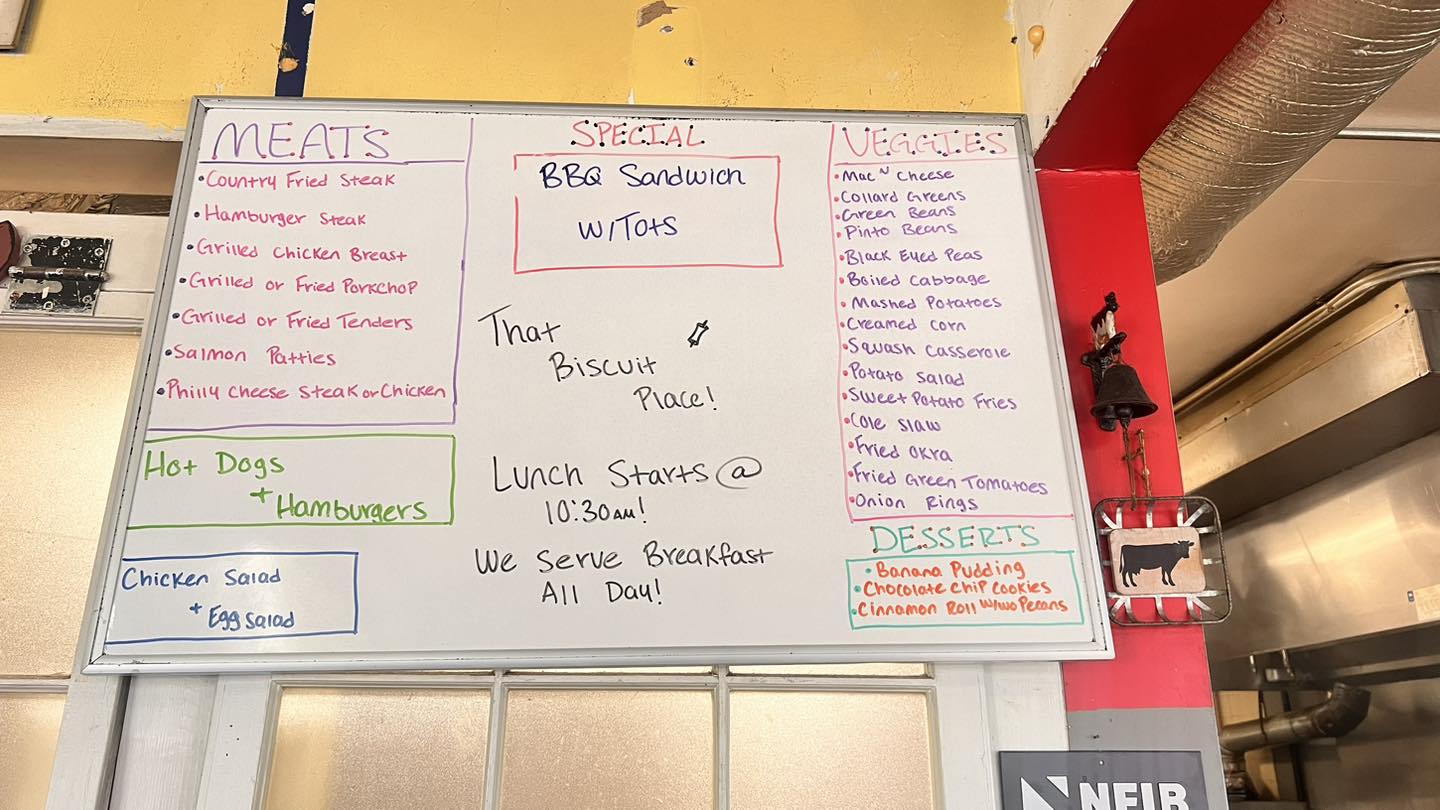 MEATS
• Country Fried Steak
• Hamburger Steak
• Grilled Chicken Breast
• Grilled or Fried Porkchop
• Grilled or Fried Tenders
• Salmon Patties
• Philly Cheese Steak or Chicken
Hot Dogs
+ Hamburgers
Chicken Salad
+ Egg Salad
SPECIAL
BBQ Sandwich
W/Tots
That
Biscuit
Place!
Lunch Starts @
10:30AM!
We Serve Breakfast
All Day!
VEGGIES
• Mac N Cheese
• Collard Greens
• Green Beans
• Pinto Beans
• Black Eyed Peas
• Boiled Cabbage
• Mashed Potatoes
• Creamed Corn
• Squash Casserole
• Potato Salad
• Sweet Potato Fries
• Cole Slaw
• Fried Okra
• Fried Green Tomatoes
• Onion Rings
DESSERTS
• Banana Pudding
• Chocolate Chip Cookies
• Cinnamon Roll W/WO Pecans
NFIB